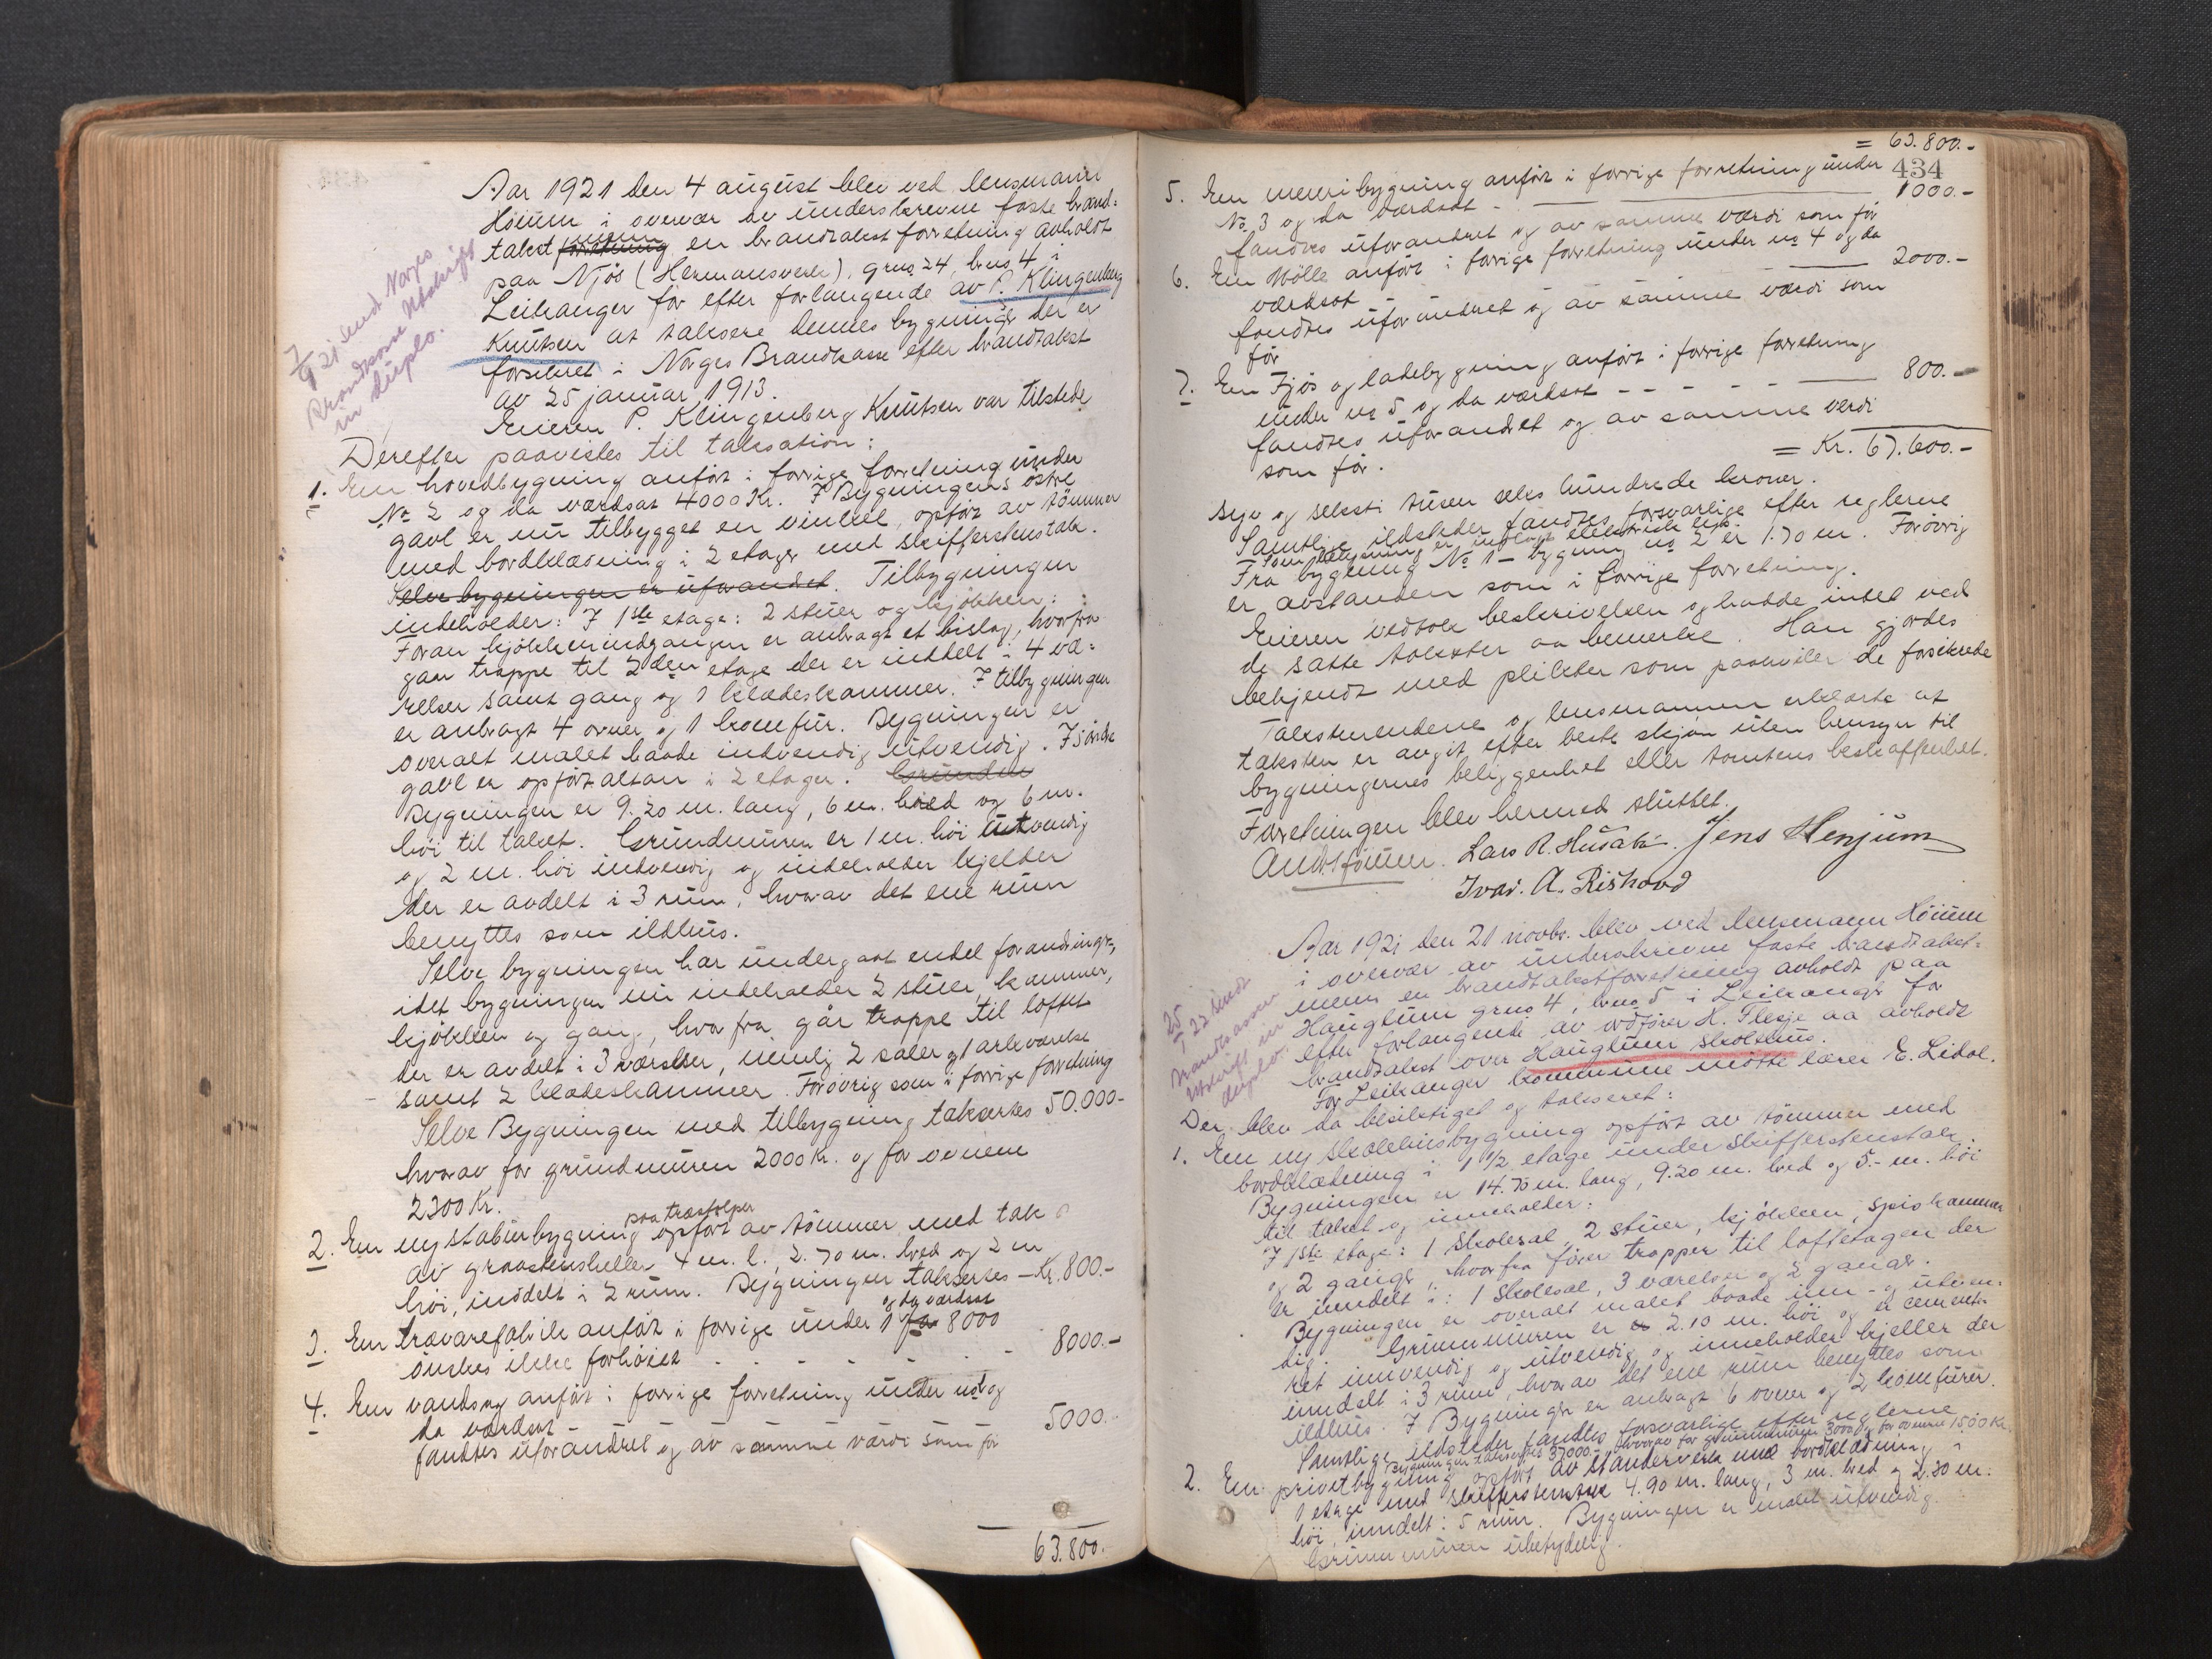 Aar 1921 den 4 august blev ved lensmann
Høium i overvær av underskrevne faste brand=
takst forretning menn en brandtakst forretning avholdt
paa Njös (Hermansverk), grno 24, brno 4 i
Leikanger för efter forlangende av P. Klingenberg
Knutsen at taksere dennes bygninger der er
forsikret i Norges Brandkasse efter brandtakst
av 25 januar 1913.
Eieren P. Klingenberg Knutsen var tilstede
7/9 21 sendt Norges
Brandkasse utskrift
in duplo.
Derefter paavistes til taksation:
1. En hovedbygning anfört i forrige forretning under
No 2 og da værdsat 4000 Kr. I Bygningens östre
gavl er nu tilbygget en vinkel, opfört av tömmer
med bordklædning i 2 etager med skifferstenstak.
Selve bygningen er uforandret. Tilbygningen
indeholder: I 1ste etage: 2 stuer og kjökken:
Foran kjökkenindgangen er anbragt et bislag, hvorfra
gaar trappe til 2den etage der er inddelt i 4 væ=
relser samt gang og 1 klædeskammer. I tilbygningen
er anbragt 4 ovner og 1 komfur. Bygningen er
overalt malet baade indvendig utvendig. I söndre
gavl er opfört altan i 2 etager. Grunden
Bygningen er 9.20 m. lang, 6 m. bred og 6 m.
höi til taket. Grundmuren er 1 m. höi utvendig
og 2 m. höi indvendig og indeholder kjelder
der er avdelt i 3 rum, hvorav det ene rum
benyttes som ildhus.
Selve bygningen har undergaat endel forandringer,
idet bygningen nu indeholder 2 stuer, kammer,
kjökken og gang, hvorfra går trappe til loftet
der er avdelt i 3 værelser, nemlig 2 saler og 1 arkværelse
samt 2 klædeskammer. Forövrig som i forrige forretning
Selve Bygningen med tilbygning takseres 50.000-
hvorav for grundmuren 2000 Kr. og for ovnene
2300 Kr.
2. En ny staburbygning paa træstolper opfört av tömmer med tak
av graastensheller 4 m. l., 2.70 m. bred og 2 m
höi, inddelt i 2 rum. Bygningen takseres – Kr. 800.-
3. En trævarefabrik anfört i forrige under 1 og da værdsat for 8000
önskes ikke forhöiet - - - - - - 8000.-
4. En vandsag anfört i forrige forretning under no 1 og
da værdsat - 5000.-
fandtes uforandret og av samme værdi som för
63.800.
= 63.800.-
434
5. En meieribygning anfört i forrige forretning under
No 3 og da værdsat - 1000.-
fandtes uforandret og av samme værdi som för
6. En Mölle anfört i forrige forretning under no 4 og da
værdsat 2000.-
fandtes uforandret og av samme værdi som
för
7. En Fjös og ladebygning anfört i forrige forretning
under no 5 og da værdsat - - - - - 800.-
fandtes uforandret og av samme verdi
som för.
= Kr. 67.600.-
Syv og seksti tusen seks hundrede kroner.
Samtlige ildsteder fandtes forsvarlige efter reglerne
Som belysning er indlagt elektrisk lys.
Fra bygning No 1 – bygning no 2 er 1.70 m. Forövrig
er avstanden som i forrige forretning.
Eieren vedtok beskrivelsen og hadde intet ved
de satte takster aa bemerke. Han gjordes
bekjendt med plikter som paahviler de forsikrede
Takstmendene og lensmannen erklærte at
taksten er avgit efter beste skjön uten hensyn til
bygningernes beliggenhet eller tomtens beskaffenhet.
Forretningen blev hermed sluttet.
And. Höium. Lars R. Husabö. Jens Henjum
Ivar. A. Rishovd
Aar 1921 den 21 novbr. blev ved lensmann Höium
i overvær av underskrevne faste brandtakst=
menn en brandtakstforretning avholdt paa
Hauglum grno 4, brno 5 i Leikanger for
efter forlangende av ordförer H. Flesje aa avholde
brandtakst over Hauglum skolehus.
25/1 22 sendt
brandkassen
utskrift in
duplo.
For Leikanger kommune mötte lærer E. Lidal.
Der blev da besiktiget og taksert:
1. En ny skolehusbygning opfört av tömmer med
bordklædning i 1 1/2 etage under skifferstenstak.
Bygningen er 14.70 m. lang, 9.20 m. bred og 5.- m. höi
til taket og inneholder:
I 1ste etage: 1 Skolesal, 2 stuer, kjökken, spiskammer
og 2 ganger, hvorfra förer trapper til loftetagen der
er inndelt i: 1 Skolesal, 3 værelser og 2 ganger.
Bygningen er overalt malet baade inn- og utven-
dig. Grunnmuren er 2.10 m. höi og er cement-
ret innvendig og utvendig og inneholder kjeller der
inndelt i 3 rum, hvorav det ene rum benyttes som
ildhus. I Bygningen er anbragt 6 ovner og 2 komfurer.
Samtlige ildsteder fandtes forsvarlige efter reglerne
Bygningen takseres 37000.- hvorav for grunnmuren 3000 og for ovnene 1500 Kr.
2. En privetbygning opfört av stænderverk med bordklædning i
1 etage med skifferstenstak 4.90 m. lang, 3 m. bred og 2.30 m.
höi, inndelt i 5 rum. Bygningen er malet utvendig.
Grunnmuren ubetydelig.